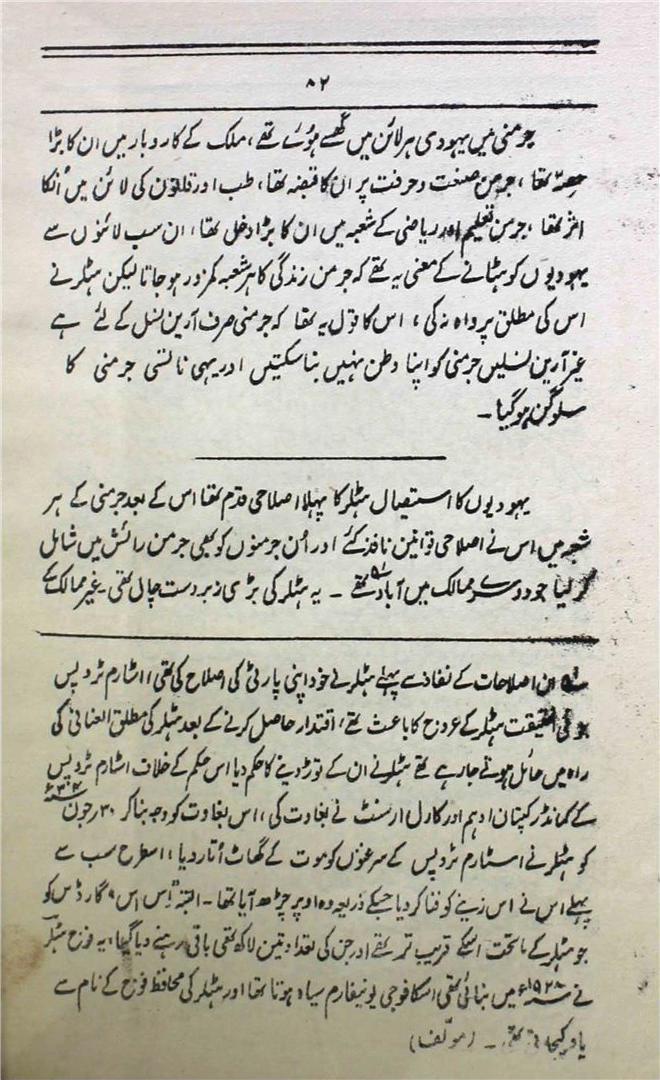 ۸۲
جرمنی میں یہودی ہر لائن میں گھسے ہوئے تھے، ملک کے کاروبار میں ان کا بڑا
حصہ تھا، جرمن صنعت و حرفت پر ان کا قبضہ تھا، طب اور قانون کی لائن میں اُنکا
اثر تھا، جرمن تعلیم اور ریاضی کے شعبہ میں ان کا بڑا دخل تھا، ان سب لائنوں سے
یہودیوں کو ہٹانے کے معنی یہ تھے کہ جرمن زندگی کا ہر شعبہ کمزور ہو جاتا لیکن ہٹلر نے
اس کی مطلق پرواہ نہ کی، اس کا قول یہ تھا کہ جرمنی صرف آرین نسل کے لئے ہے
غیر آرین نسلیں جرمنی کو اپنا وطن نہیں بنا سکتیں اور یہی ناتسی جرمنی کا
سلوگن ہو گیا۔
یہودیوں کا استیصال ہٹلر کا پہلا اصلاحی قدم تھا اس کے بعد جرمنی کے ہر
شعبہ میں اس نے اصلاحی قوانین نافذ کئے اور اُن جرمنوں کو بھی جرمن رائش میں شامل
کر لیا جو دوسرے ممالک میں آباد تھے۔ یہ ہٹلر کی بڑی زبردست چال تھی۔ غیر ممالک کے
ان اصلاحات کے نفاذ سے پہلے ہٹلر نے خود اپنی پارٹی کی اصلاح کی تھی، اسٹارم ٹروپس
جو فی الحقیقت ہٹلر کے عروج کا باعث تھے، اقتدار حاصل کرنے کے بعد ہٹلر کی مطلق العنانی کی
راہ میں حائل ہوتے جا رہے تھے ہٹلر نے ان کے توڑ دینے کا حکم دیا اس حکم کے خلاف اسٹارم ٹروپس
کے کمانڈر کپتان ادہم اور کارل ارنسٹ نے بغاوت کی، اس بغاوت کو وجہ بنا کر ۳۰ جون
کو ہٹلر نے اسٹارم ٹروپس کے سرغنوں کو موت کے گھاٹ اُتار دیا، اسطرح سب سے
پہلے اس نے اس زینے کو فنا کر دیا جسکے ذریعہ وہ اوپر چڑھ آیا تھا۔ البتہ "اِس اس" گارڈس کو
جو ہٹلر کے ماتحت اسکے قریب تر تھے اور جن کی تعداد تین لاکھ تھی باقی رہنے دیا گیا، یہ فوج ہٹلر
نے ۱۹۲۸ء میں بنائی تھی اسکا فوجی یونیفارم سیاہ ہوتا تھا اور ہٹلر کی محافظ فوج کے نام سے
یاد کیجاتی تھی۔ (مولف)